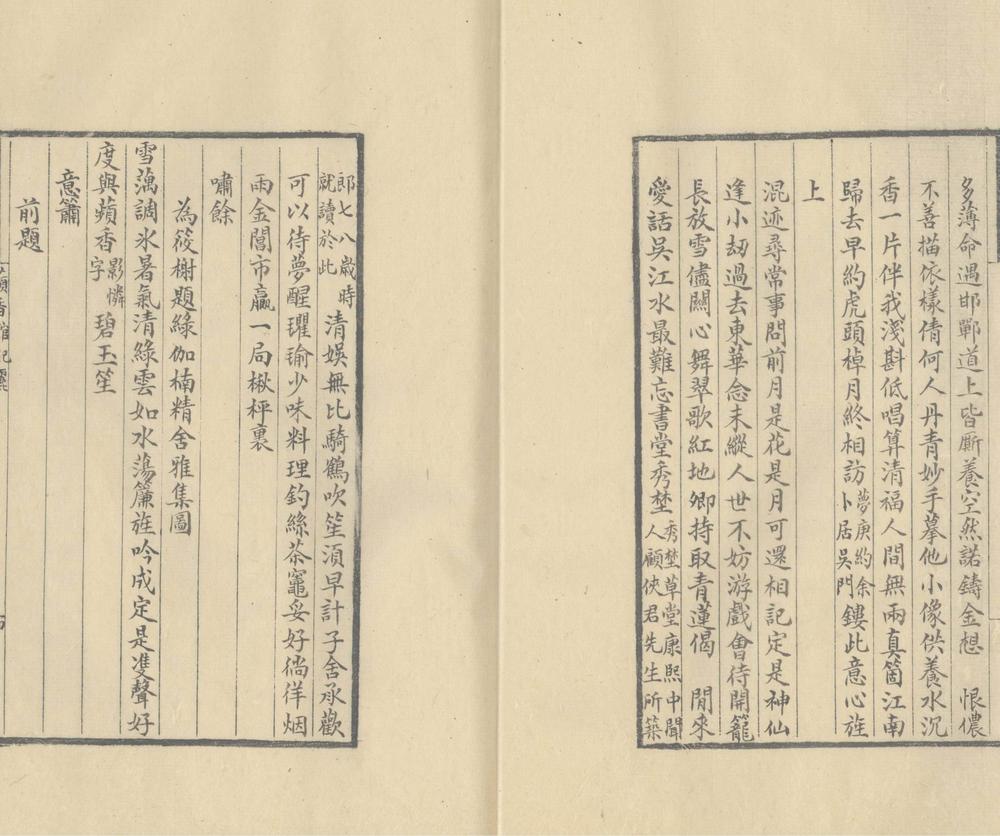 多薄命遇邯鄲道上皆廝養空然諾鑄金想　恨儂
不善描依樣倩何人丹青妙手摹他小像供養水沉
香一片伴我淺斟低唱算清福人間無兩真箇江南
歸去早約虎頭棹月終相訪夢庚約余卜居吳門鏤此意心旌
上
混迹尋常事問前月是花是月可還相記定是神仙
逢小刼過去東華念末縱人世不妨游戲會待開籠
長放雪儘關心舞翠歌紅地卿持取青蓮偈　閒來
愛話吳江水最難忘書堂秀埜秀埜草堂康熙中聞人顧俠君先生所築
郎七八歲時就讀於此清娛無比騎鶴吹笙須早計子舍承歡
可以待夢醒瓘瑜少味料理釣絲茶竈妥好徜徉烟
雨金閶市贏一局楸枰裏
嘯餘
為筱榭題綠伽楠精舍雅集圖
雪藕調氷暑氣清綠雲如水蕩簾旌吟成定是雙聲好
度與蘋香影憐字碧玉笙
意簫
前題